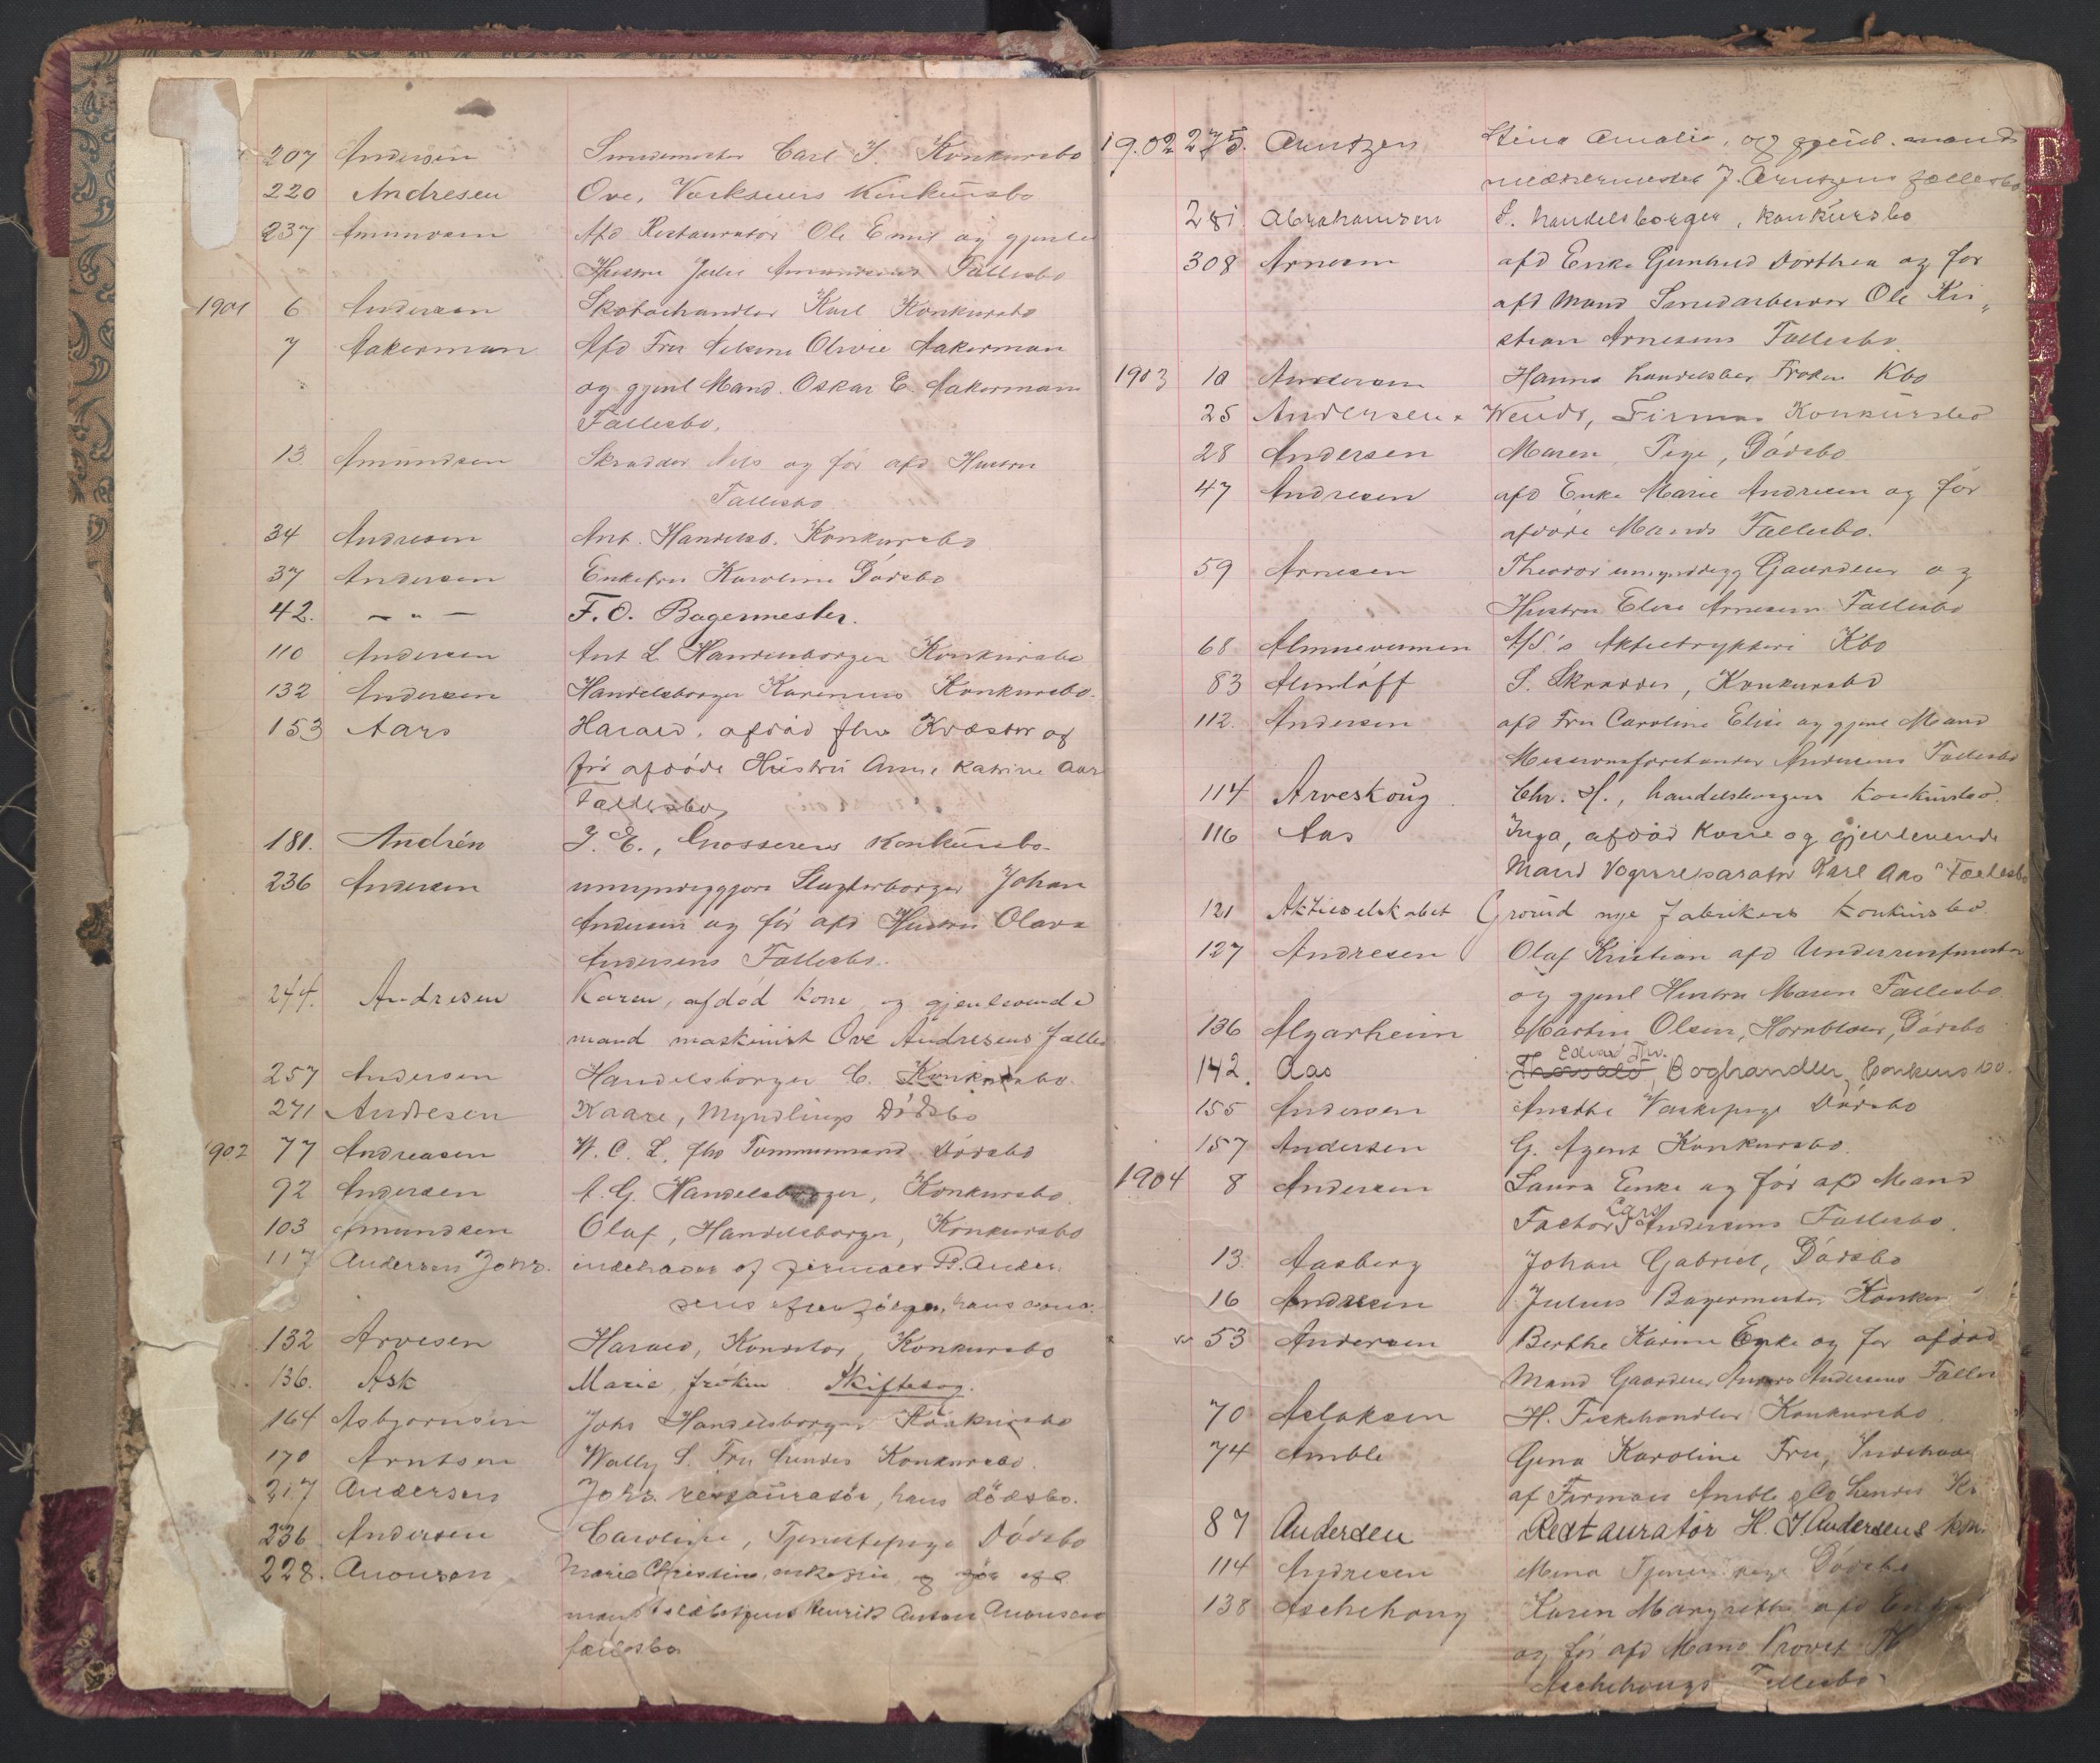 207 Andersen Smedemester Carl J. Konkursbo
220 Andresen Ove, Konkursbo
237 Amundsen Afd Restauratør Ole Emil og gjenlev
Hustru Julie Amundsens Fællesbo
1901 6 Andersen Skotøihandler Karl Konkursbo
7 Aakerman Afd Fru Olivie Aakerman
og gjenl Mand. Oskar E. Aakerman
Fællesbo.
13 Amundsen Skrædder Nils og før afd Hustru
Fællesbo
34 Andresen Ant. Handelsb. Konkursbo
37 Andersen Enkefru Karoline Dødsbo
42. — " — F. O. Bagermester.
110 Andersen Ant L Handelsborger Konkursbo
132 Andersen Handelsborger Karenius Konkursbo.
153 Aars Harald, afdød fhv og
før afdøde Hustru Anne Katrine Aars
Fællesbo,
181. Andrén J. E., Grosserers Konkursbo.
236 Andersen umyndiggjort Slagterborger Johan
Andersen og før afd Hustru Olava
Andersens Fællesbo.
244. Andresen Karen, afdød kone og gjenlevende
mand maskinist Ove Andresens Fælles
257 Andersen Handelsborger C. Konkursbo.
271 Andresen Kaare, Myndlings Dødsbo
1902 77 Andreasen H. C. L. fhv Tømmermand Dødsbo
92 Andersen A. G. Handelsborger, Konkursbo.
103 Amundsen Olaf, Handelsborger, Konkursbo
117 Andersen Johs. indehaver af firmaet P. Ander-
sens efterfølger, hans
132 Arvesen Harald, Konditor, Konkursbo
136. Ask Marie, frøken Skiftesag.
164 Asbjørnsen Johs Handelsborger Konkursbo
170 Arntsen Wally S. Fru hendes Konkursbo.
217 Andersen Johs. restauratør, hans dødsbo.
236 Andersen Caroline, Tjenestepige Dødsbo
228. Aronsen Marie Christine, enkefru, og før afd
mand Henrik Anton Aronsens
fællesbo
1902 275. Arntzen Stina Amalie, og gjenl. mand
J. Arntzens fællesbo
281 Abrahamsen S. handelsborger, konkursbo
308 Arnesen afd Enke Gunhild Dorthea og før
afd Mand Smedarbeider Ole Kri-
stian Arnesens Fællesbo
1903 10 Andersen Hanna handelsber Frøken Kbo
25 Andersen & Wendt, Firma Konkursbo
28 Andersen Maren Pige, Dødsbo
47 Andresen afd Enke Marie Andresen og før
afdøde Mands Fællesbo.
59 Arnesen Theodor umyndigg Gaardeier og
Hustru Elise Arnesens Fællesbo
68 Almuevennen A/S's Aktietrykkeri Kbo
83 Almløff S. Skrædder, Konkursbo
112. Andersen afd Fru Caroline Elise og gjenl Mand
Missionsforstander Andersens Fællesbo
114 Arveskoug Chr. H., handelsborgers konkursbo.
116 Aas Inga, afdød kone og gjenlevende
Mand Vognreparatør Karl Aas' Fællesbo
121 Aktieselskabet Grorud nye fabrikers konkursbo
127 Andresen Olaf Kristian afd
og gjenl Hustru Maren Fællesbo
136 Algarheim Martin Olsen, Hornblæser, Dødsbo
Edvard Thv.
142. Aas Thorvald, Boghandler, Konkursbo.
155 Andersen Anethe Vaskepige Dødsbo
157 Andersen G. Agent Konkursbo.
1904 8 Andersen Laura Enke og før afd Mand
Factor Carl Andersens Fællesbo.
13. Aasberg Johan Gabriel, Dødsbo
16 Andresen Julius Bagermester Konkur
53 Andersen Berthe Karine Enke og før afdød
Mand Gaardeier Andersens Fælles
70 Aslaksen H. Fiskehandler Konkursbo
74 Amble Gina Karoline Fru, Indehaver
af Firmaet Amble & Co hendes K
87 Andersen Restauratør H. J Andersens kon
114 Andresen Mina Tjenestepige Dødsbo
138 Aschehoug Karen Margrethe afd Enke
og før afd Mand Provst Th
Aschehougs Fællesbo